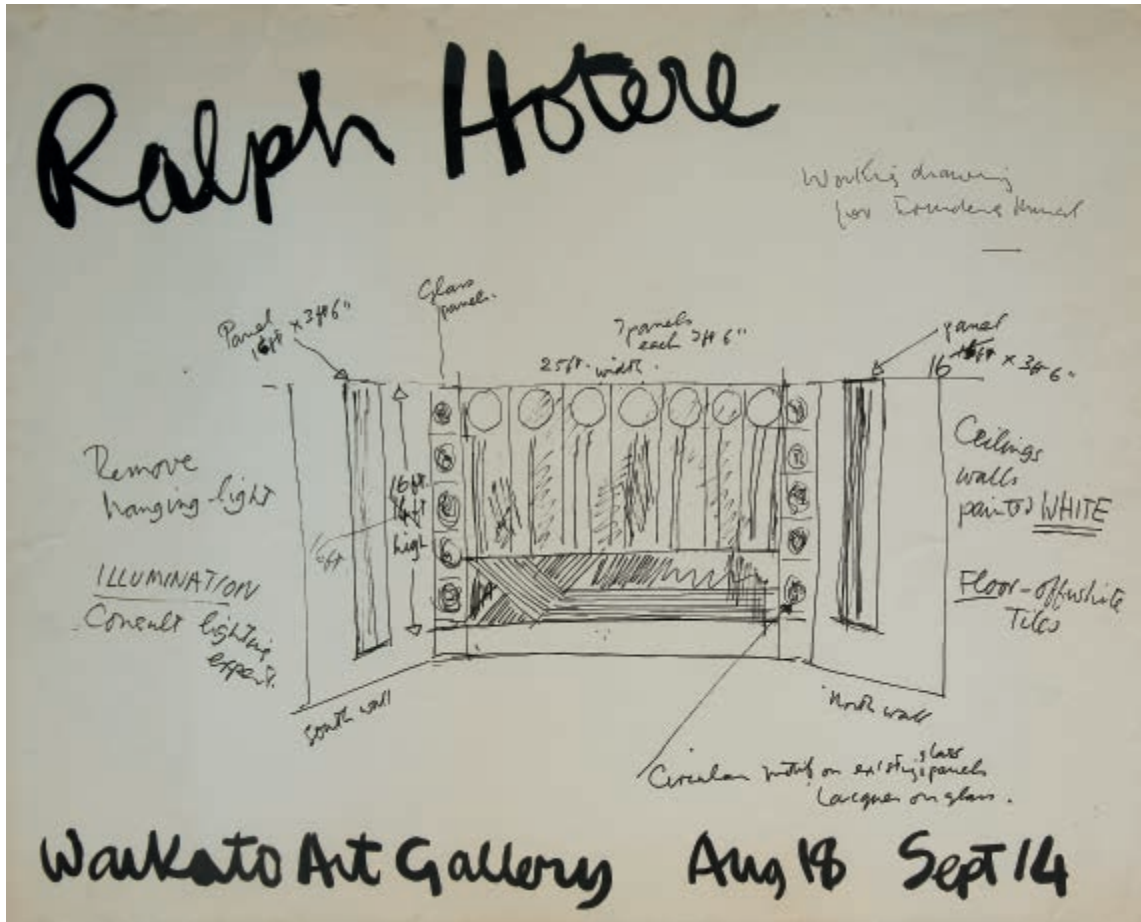 Ralph Hotere
Working drawing
for Founders Mural
Glass
panels.
Panel
16ft x 3ft 6"
7 panels
each 3ft 6"
25ft. width.
panel
16 x 3ft 6"
Remove
hanging-light
16ft.
14ft
high
6ft
ILLUMINATION
Consult lighting
expert.
Ceilings
walls
painted WHITE
Floor-offwhite
Tiles
South wall
North wall
Circular motif on existing glass panels
Lacquer on glass.
Waikato Art Gallery Aug 18 Sept 14